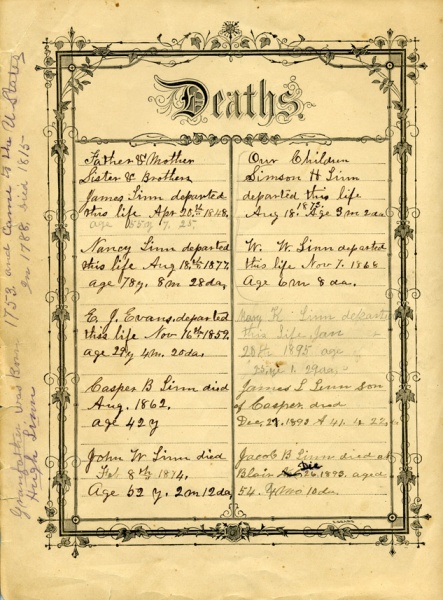 Deaths.
Father & Mother
Sister & Brothers
James Linn departed
this life Apr 20th 1848.
age 55 y 7. 25.
Nancy Linn departed
this life Aug 18th 1877.
age 78 y. 8 m 28 da,
E. J. Evans. departed
this life Nov 16th 1859.
age 29 y 4 m. 20 da.
Casper B Linn died
Aug. 1862.
age 42 y
John W Linn died
Feb 8th 1874.
Age 52 y. 2 m 12 da,
Our Children
Simson H Linn
departed this life
1873.
Aug 18. Age 3 m 2 da
W. W. Linn departed
this life Nov 7. 1868
Age 6 m 8 da.
Mary K. Linn departed
this life Jan
20th 1895 age
25 y 1. 29 da
James L Linn son
of Casper. died
Dec, 29. 1890 A 41. 22
Jacob B Linn died at
Dec
Blair 26 1893. aged
54. 10 da
Grandfather was Born 1753 and came to the U States
Hugh in 1788. died 1815